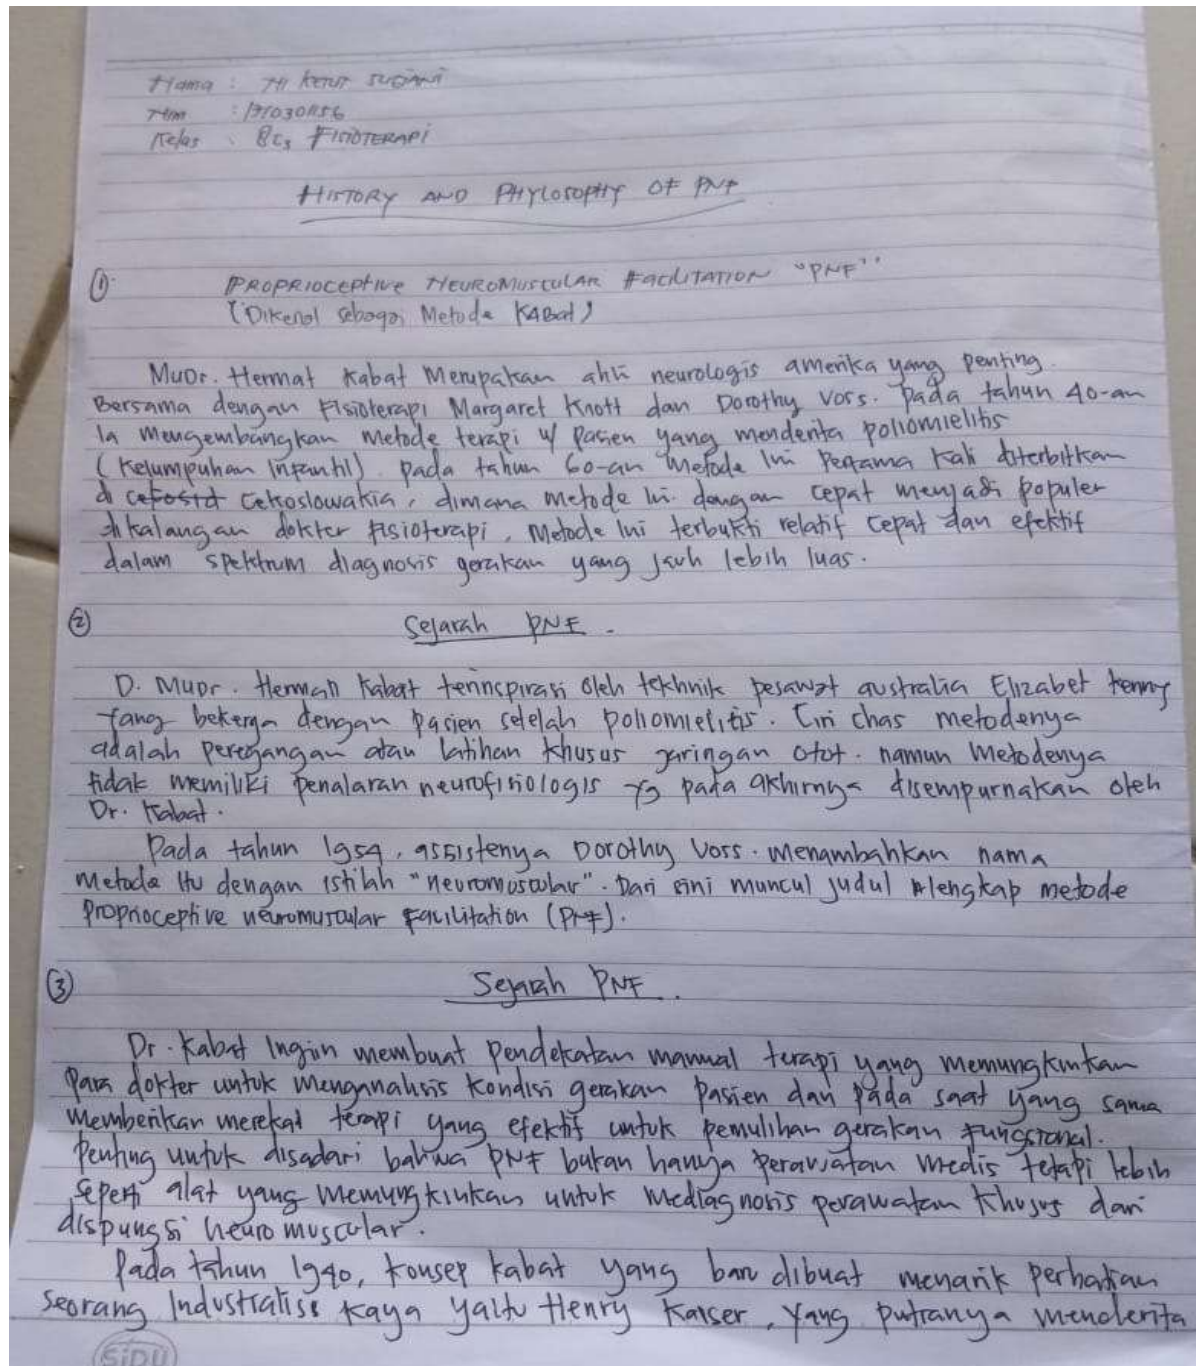 Nama : Ni Ketut Sudani
Nim :
Kelas : BC3 FISIOTERAPI
HISTORY AND PHYLOSOPHY OF PNF
① PROPRIOCEPTIVE NEUROMUSCULAR FACILITATION "PNF"
(Dikenal sebagai Metode KABat)
MuDr. Hermat Kabat Merupakan ahli neurologis amerika yang penting.
Bersama dengan Fisioterapi Margaret Knott dan Dorothy Voss. Pada tahun 40-an
Ia mengembangkan metode terapi u/ pasien yang menderita poliomielitis
(Kelumpuhan Infantil). Pada tahun 60-an Metode Ini Pertama Kali diterbitkan
di Cekoslowakia, dimana metode Ini dengan cepat menjadi populer
dikalangan dokter Fisioterapi, Metode Ini terbukti relatif cepat dan efektif
dalam spektrum diagnosis gerakan yang jauh lebih luas.
② Sejarah PNF.
D. MuDr. Herman Kabat terinspirasi oleh tekhnik pesawat australia Elizabet Kenny
Yang bekerja dengan pasien setelah poliomielitis. Ciri chas metodenya
adalah peregangan atau latihan khusus jaringan otot. namun Metodenya
tidak memiliki penalaran neurofisiologis yg pada akhirnya disempurnakan oleh
Dr. Kabat.
Pada tahun 1954, assistenya Dorothy Voss. menambahkan nama
metode Itu dengan istilah "neuromuscular". Dari sini muncul judul lengkap metode
Proprioceptive neuromuscular Facilitation (PNF).
③ Sejarah PNF.
Dr. Kabat Ingin membuat Pendekatan manual terapi yang memungkinkan
Para dokter untuk menganalisis kondisi gerakan Pasien dan pada saat yang sama
memberikan merekat terapi yang efektif untuk pemulihan gerakan Fungsional.
Penting untuk disadari bahwa PNF bukan hanya perawatan medis tetapi lebih
seperti alat yang memungkinkan untuk mediagnosis perawatan Khusus dari
dispungsi neuro muscular.
Pada tahun 1940, konsep kabat yang baru dibuat menarik perhatian
seorang Industralise kaya yaitu Henry Kaiser, yang putranya menderita
SiDU